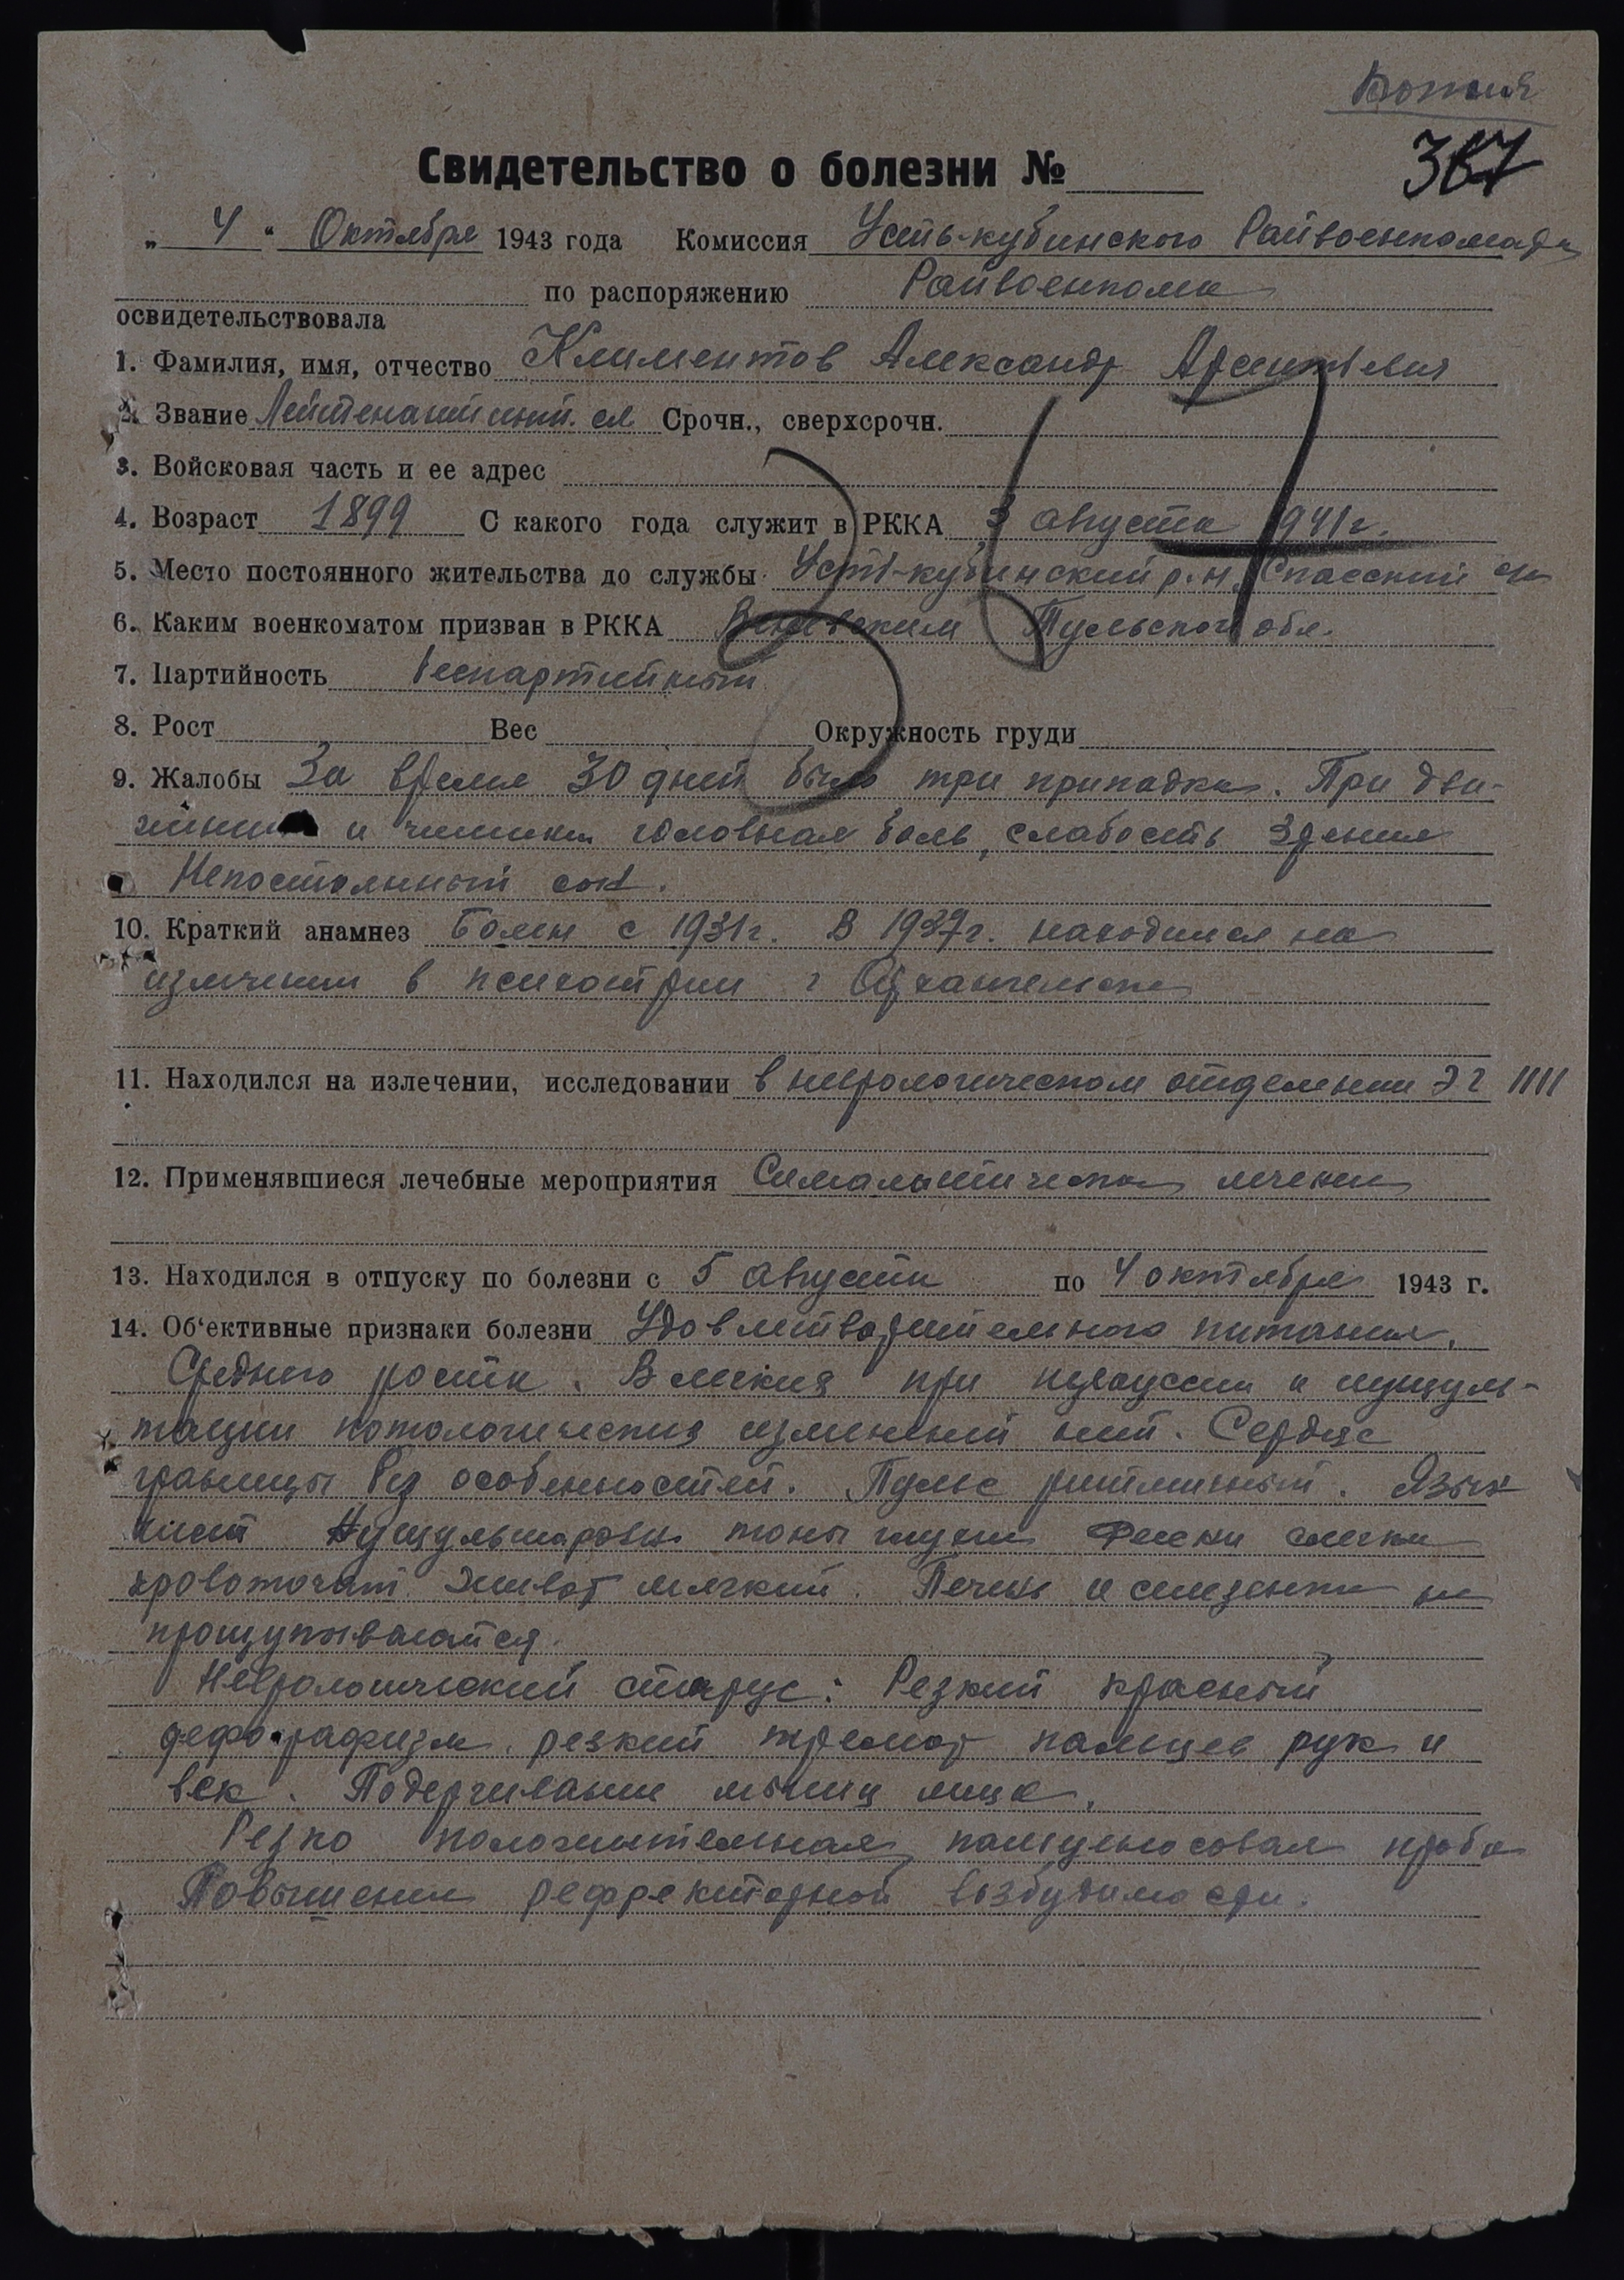 Копия
367
Свидетельство о болезни №
„ 4 “ Октября 1943 года Комиссия Усть-кубинского Райвоенкомата
по распоряжению Райвоенкома
освидетельствовала
1. Фамилия, имя, отчество Климентов Александр
2. Звание Лейтенант Срочн., сверхсрочн.
3. Войсковая часть и ее адрес
367
4. Возраст 1899 С какого года служит в РККА 3 августа 1941 г.
5. Место постоянного жительства до службы Усть-кубинский р.н. Спасский
6. Каким военкоматом призван в РККА Тульской обл.
7. Партийность беспартийный
8. Рост Вес Окружность груди
9. Жалобы За время 30 дней было три припадка. При дви-
и головная боль, слабость зрения
Непостоянный сон.
10. Краткий анамнез Болен с 1931 г. В 1937 г. находился на
излечении в г Архангельске
11. Находился на излечении, исследовании в неврологическом отделении ЭГ 1111
12. Применявшиеся лечебные мероприятия лечение
13. Находился в отпуску по болезни с 5 августа по 4 октября 1943 г.
14. Об‘ективные признаки болезни Удовлетворительного питания,
Среднего роста. В легких при и
патологических изменений нет. Сердце
границы без особенностей. Пульс ритмичный. Язык
чист тоны глухие
кровоточат. Живот мягкий. Печень и селезенка не
прощупываются.
Неврологический статус: Резкий красный
резкий тремор пальцев рук и
век. Подергивание мышц лица.
Резко положительная проба
Повышение возбудимости.